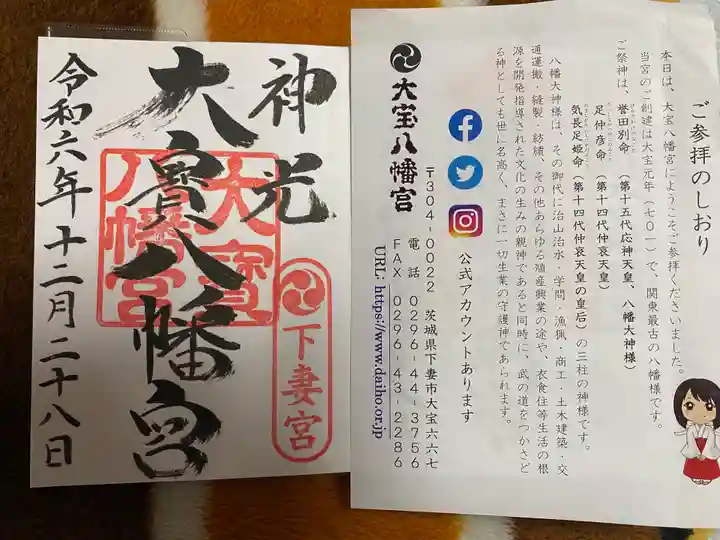 神光
大寳八幡宮
大寳八幡宮
下妻宮
令和六年十二月二十八日
ご参拝のしおり
本日は、大宝八幡宮にようこそご参拝くださいました。
当宮のご創建は大宝元年(七〇一)で、関東最古の八幡様です。
ご祭神は、誉田別命(第十五代応神天皇、八幡大神様)
足仲彦命(第十四代仲哀天皇)
気長足姫命(第十四代仲哀天皇の皇后)の三柱の神様です。
八幡大神様は、その御代に治山治水・学問・漁猟・商工・土木建築・交
通運搬・縫製・紡績、その他あらゆる殖産興業の途や、衣食住等生活の根
源を開発指導された文化の生みの親神であると同時に、武の道をつかさど
る神としても世に名高く、まさに一切生業の守護神であられます。
公式アカウントあります
大宝八幡宮
〒304-0022 茨城県下妻市大宝六六七
電話 0296-44-3756
FAX 0296-43-2286
URL: https://www.daiho.or.jp